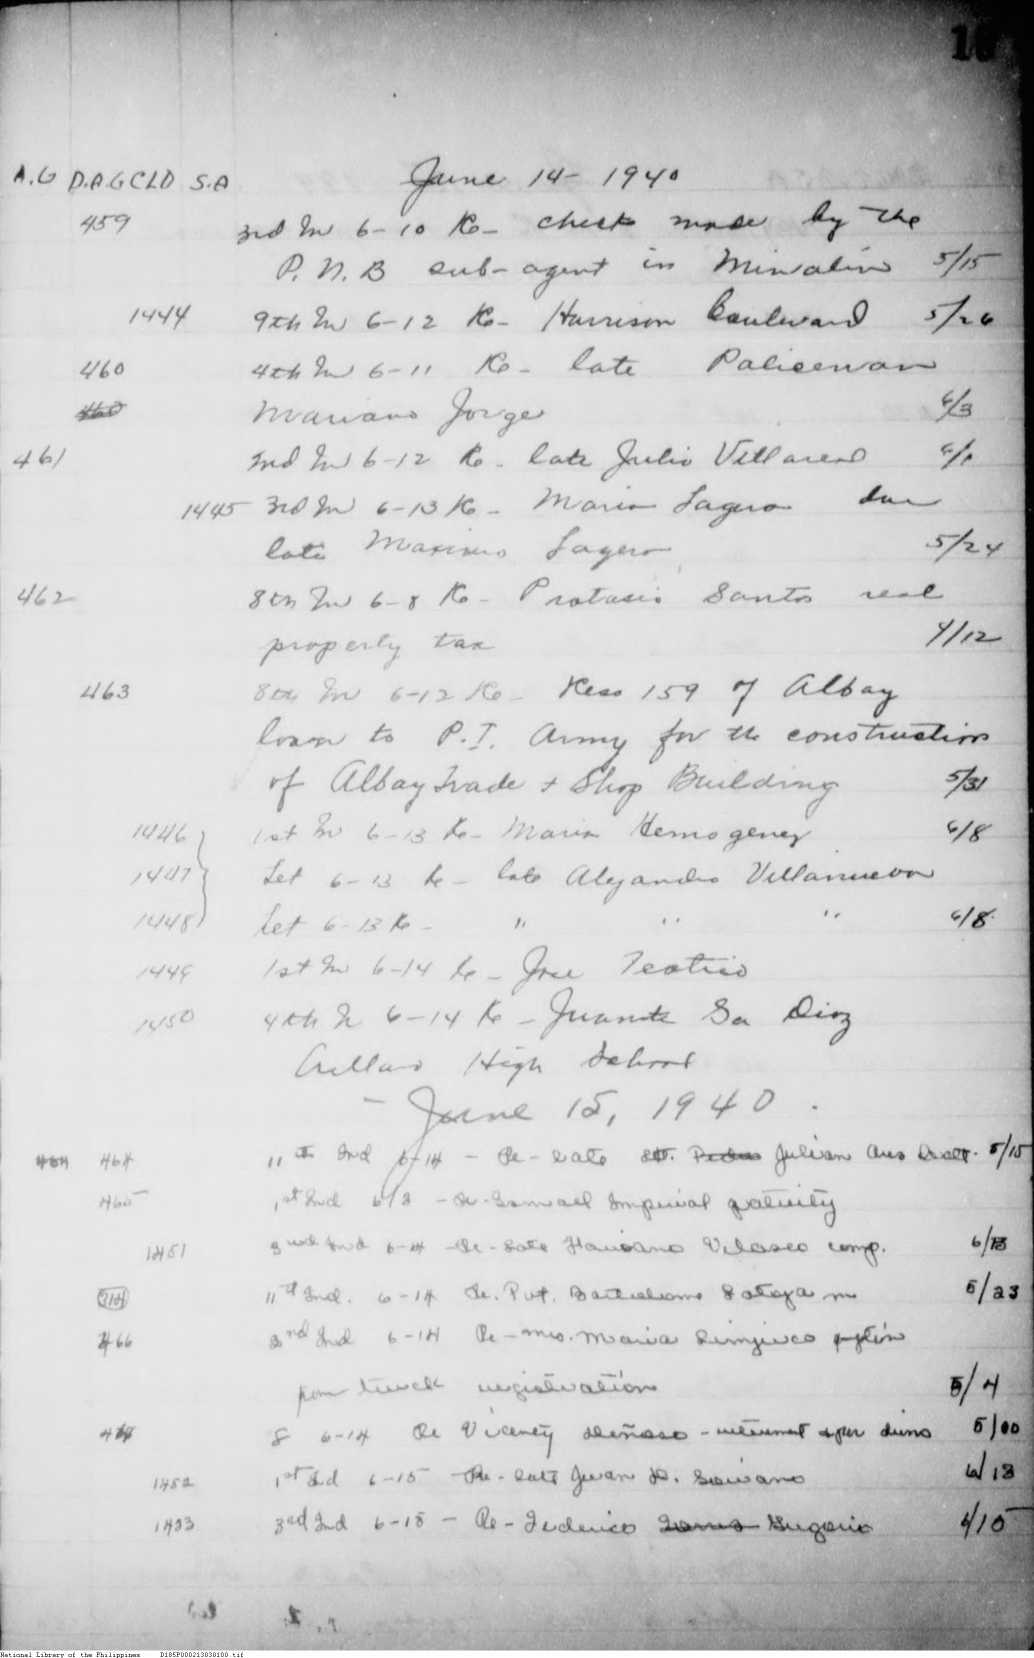 A.G D.A.G CLD S.A June 14 - 1940
459 3rd In 6-10 Re- check made by the
P.N.B sub-agent in Minalin 5/15
1444 9th In 6-12 Re- Harrison Boulevard 5/26
460 4th In 6-11 Re- late Policeman
460 Mariano Jorge 6/3
461 2nd In 6-12 Re- late Julio Villareal 6/1
1445 3rd In 6-13 Re- Maria Lagero
late Maximo Lagero 5/24
462 8th In 6-8 Re- Protasio Santos real
property tax 4/12
463 8th In 6-12 Re- Reso 159 of Albay
loan to P.I. Army for the construction
of Albay Trade & Shop Building 5/31
1446 1st In 6-13 Re- Maria Hemogenez 6/8
1447 Let 6-13 Re- late Alejandro Villanueva
1448 Let 6-13 Re- " " " 6/8
1449 1st In 6-14 Re- Jose Teotico
1450 4th In 6-14 Re- Juanita Sa Dioz
Arellano High School
- June 15, 1940.
464 464 11th Ind 6-14 - Re- Late Pedro Julian 5/15
465 1st Ind 6/3 - Re- Samuel Imperial gratuity
1451 2nd Ind 6-14 - Re- Late Velasco comp. 6/13
11th Ind. 6-14 Re. Pvt. 5/23
466 2nd Ind 6-14 Re- Mrs. Maria
truck registration 5/4
8 6-14 Re 5/00
1452 1st Ind 6-15 - Re- late Juan D. Soriano 6/13
1453 3rd Ind 6-15 - Re- Federico 4/15
National Library of the Philippines D185P000213030100.tif